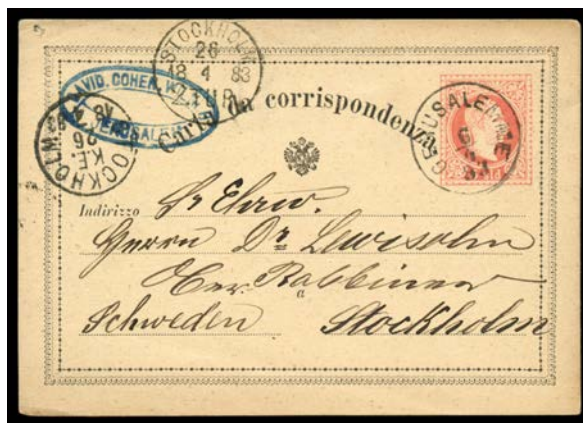 STOCKHOLM
26
18 4 83
DAVID. COHEN
JERUSALEM
STOCKHOLM
K.E.
26
Carta da corrispondenza
GERUSALEMME
Indirizzo Sr Ehrw.
Herrn Dr Lewisohn
Ober Rabbiner
a
Schweden Stockholm